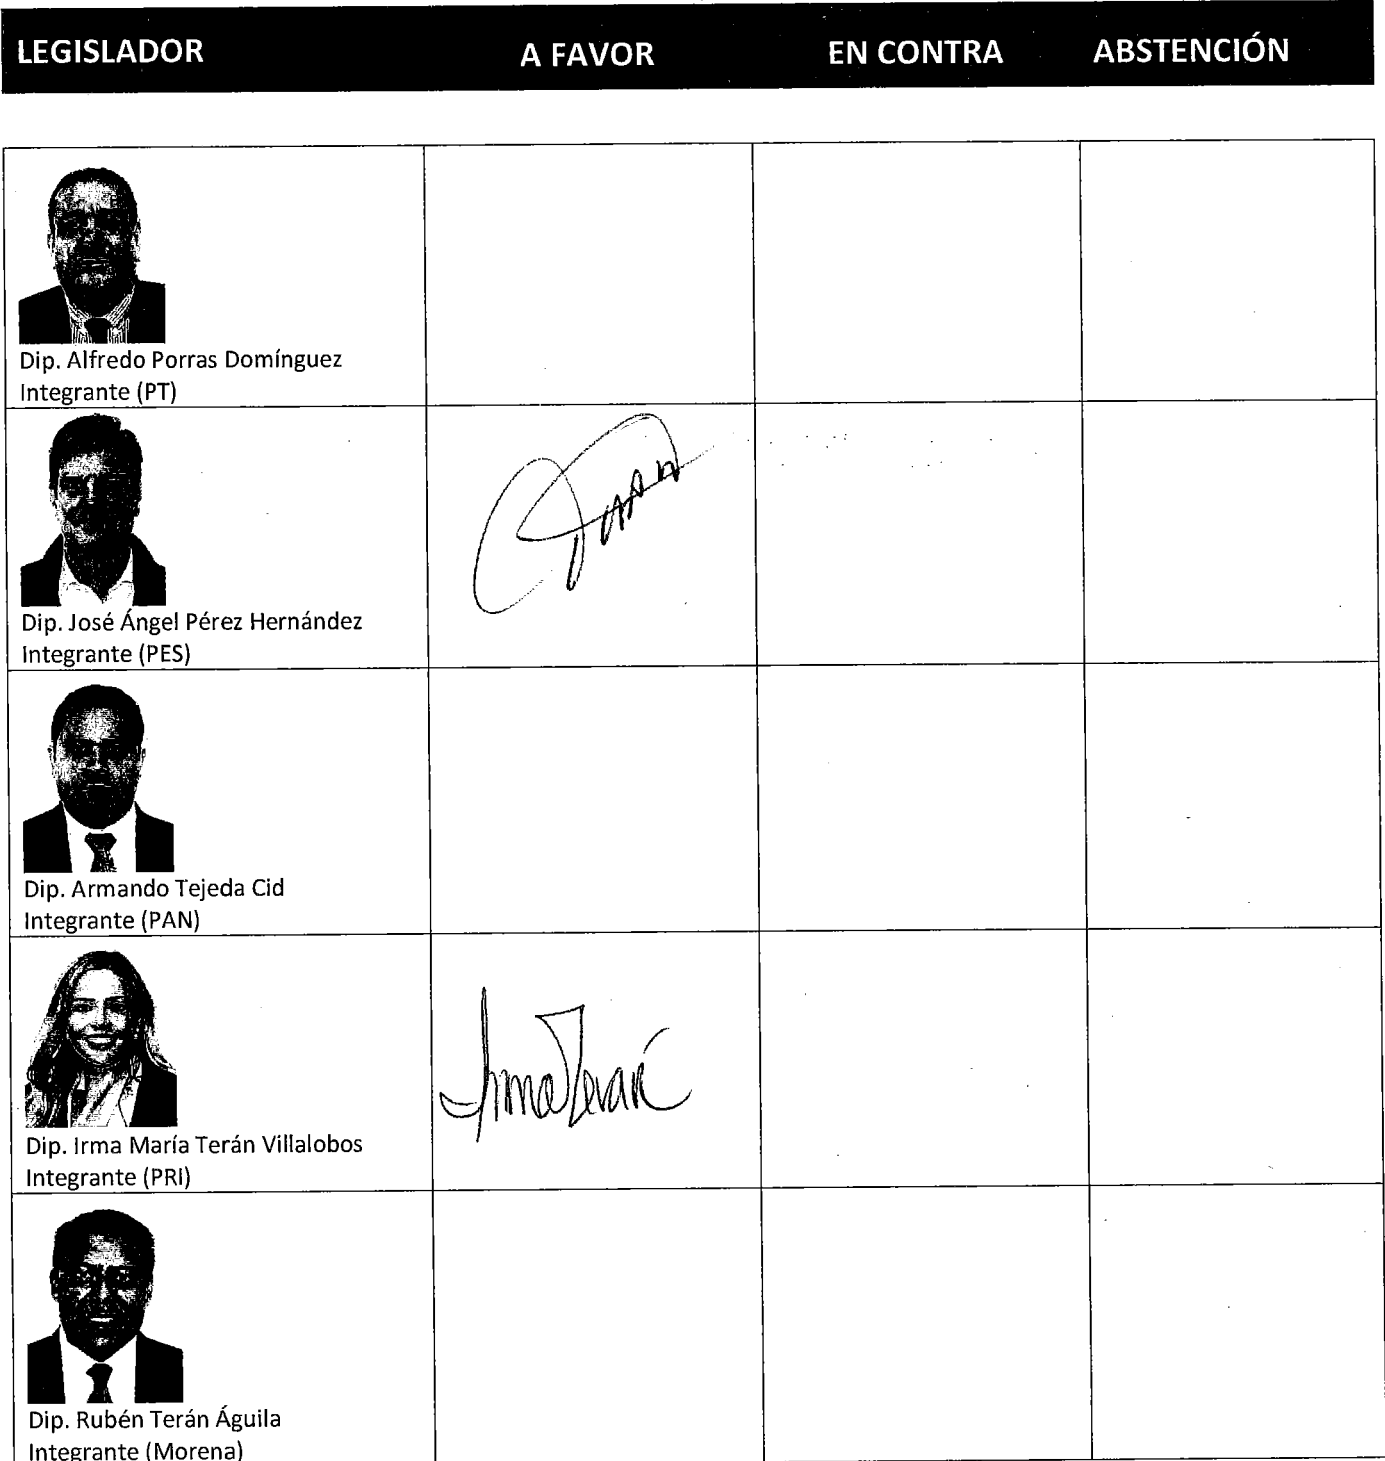 LEGISLADOR A FAVOR EN CONTRA ABSTENCIÓN
Dip. Alfredo Porras Domínguez
Integrante (PT)
Dip. José Ángel Pérez Hernández
Integrante (PES)
Dip. Armando Tejeda Cid
Integrante (PAN)
Irma Terán
Dip. Irma María Terán Villalobos
Integrante (PRI)
Dip. Rubén Terán Águila
Integrante (Morena)